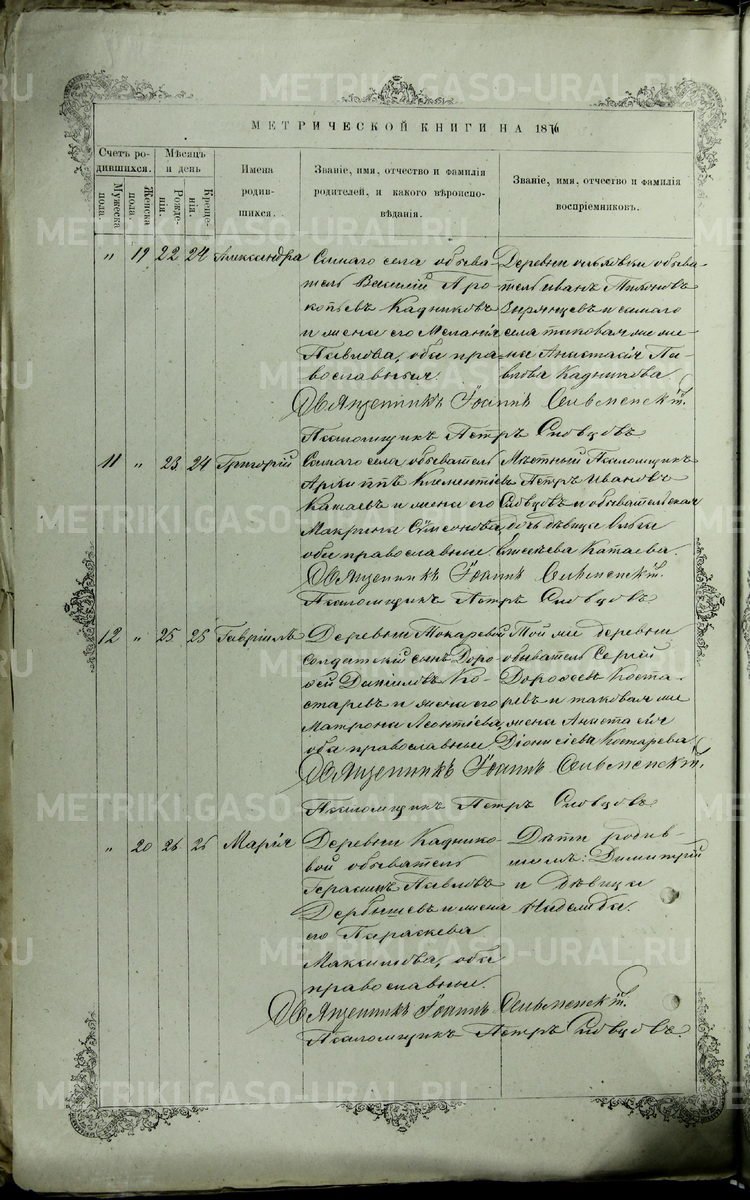 МЕТРИЧЕСКОЙ КНИГИ НА 1876
Счетъ ро-
дившихся.
Мужеска
пола.
Женска
пола.
Мѣсяцъ
и день
Рожде-
нія.
Креще-
нія.
Имена
родив-
шихся.
Званіе, имя, отчество и фамилія
родителей, и какого вѣроиспо-
вѣданія.
Званіе, имя, отчество и фамилія
воспріемниковъ.
" 19 22 24 Александра
Самаго села обыва-
тель Василій Про-
копьевъ Кадниковъ
и жена его Меланія
Павлова, оба пра-
вославныя.
Деревни обыва-
тель Иванъ
Зырянцевъ и самаго
села таковая же же-
на Анастасія Па-
влова Кадникова.
Священникъ Іоаннъ
Псаломщикъ Петръ Словцовъ
11 " 23 24 Григорій
Самаго села обыватель
Архиппъ Климентіевъ
Катаевъ и жена его
Макрина Сѵмеонова,
оба православные
Мѣстный Псаломщикъ
Петръ Ивановъ
Словцовъ и обывательская
дочь дѣвица Ольга
Елисѣева Катаева.
Священникъ Іоаннъ
Псаломщикъ Петръ Словцовъ
12 " 25 25 Гавріилъ
Деревни Токаревой
солдатскій сынъ Доро-
ѳей Даніиловъ Ко-
старевъ и жена его
Матрона Леонтіева,
оба православные
Той же деревни
обыватель Сергій
Дороѳеевъ Коста-
ревъ и таковая же
жена Анастасія
Діонисіева Костарева.
Священникъ Іоаннъ
Псаломщикъ Петръ Словцовъ
" 20 26 26 Марія
Деревни Каднико-
вой обыватель
Герасимъ Павловъ
Дербышевъ и жена
его Параскева
Максимова, оба
православные.
Дѣти родив-
шихъ: Димитрій
и дѣвица
Священникъ Іоаннъ
Псаломщикъ Петръ Словцовъ.
METRIKI.GASO-URAL.RU